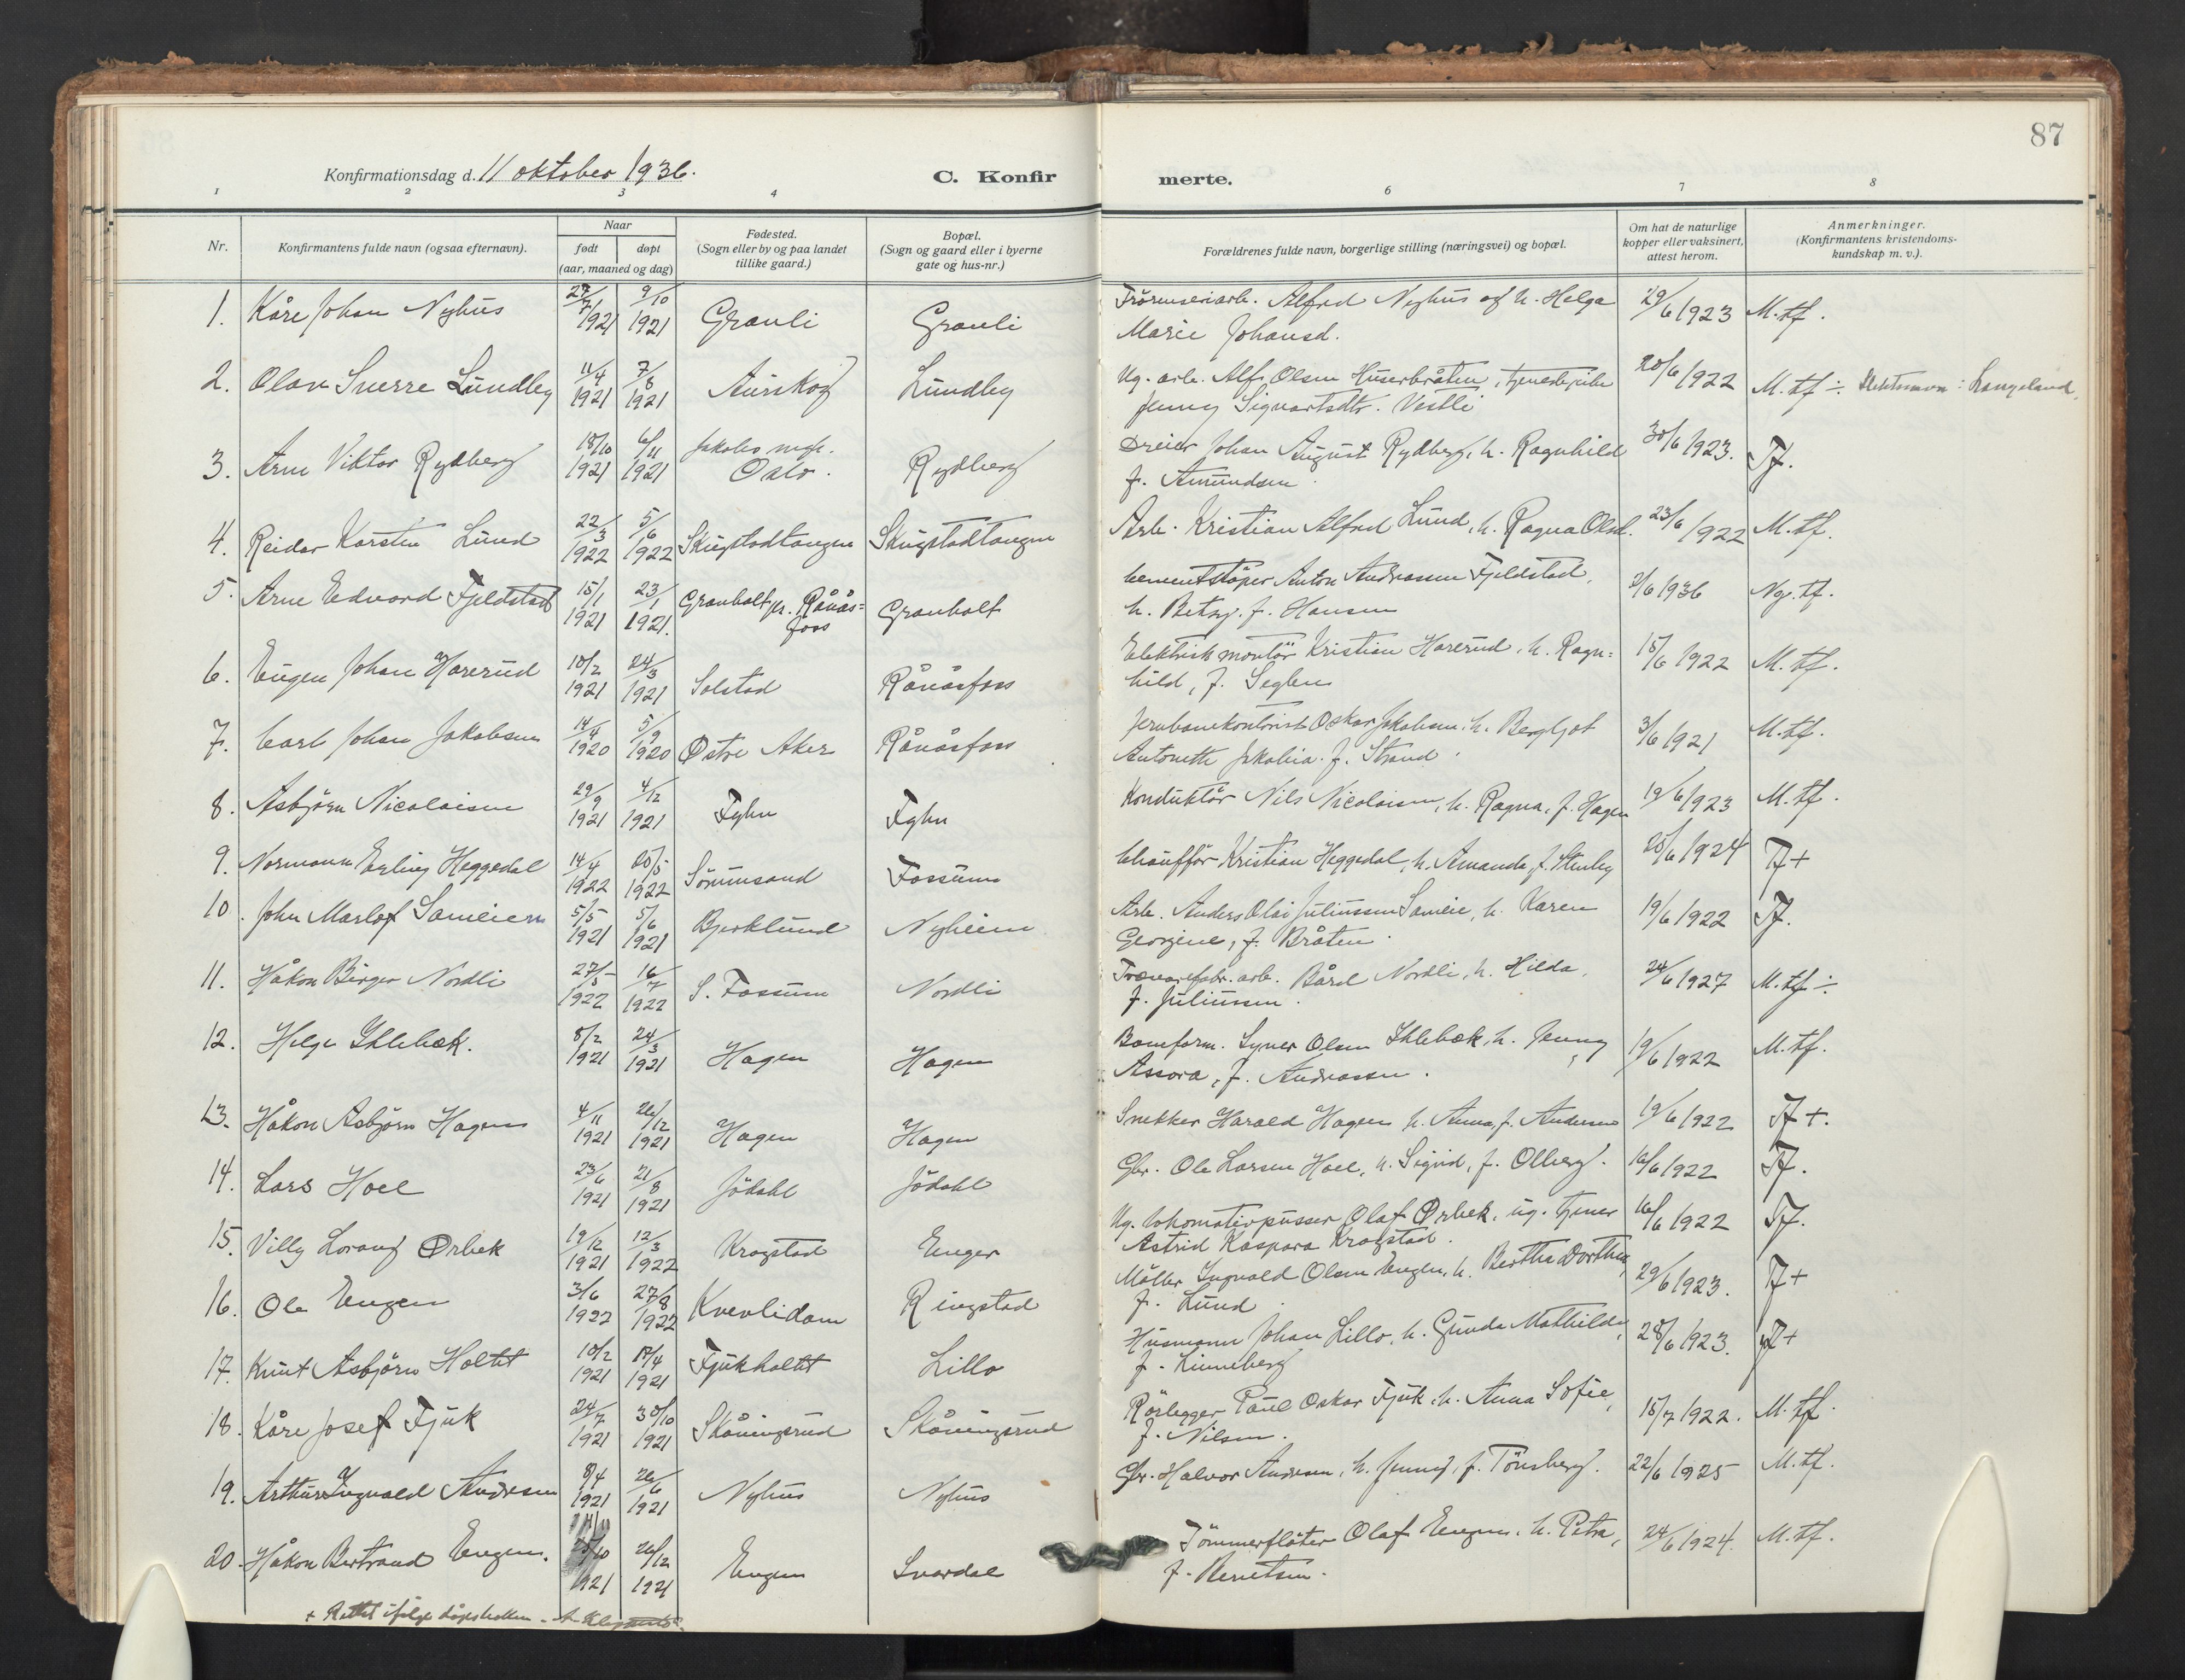 87
Konfirmationsdag d. 11 oktober 1936.
C. Konfir
merte.
1 2 3 4 6 7 8
Nr. Konfirmantens fulde navn (ogsaa efternavn). Naar født døpt (aar, maaned og dag) Fødested. (Sogn eller by og paa landet tillike gaard.) Bopæl. (Sogn og gaard eller i byerne gate og hus-nr.) Forældrenes fulde navn, borgerlige stilling (næringsvei) og bopæl. Om hat de naturlige kopper eller vaksinert, attest herom. Anmerkninger. (Konfirmantens kristendoms-kundskap m. v.).
1. Kåre Johan Nyhus 27/7 1921 9/10 1921 Granli Granli Alfred Nyhus og h. Helga 29/6 1923 M.tf.
Marie Johansd.
2. Olav Sverre Lundby 11/4 1921 7/8 1921 Aurskog Lundby Ug. arb. Alf Olsen Huserbråten, tjenestepike 20/6 1922 M.tf ÷ Slektsnavn: Langeland.
Jenny Sigvartsdtr. Vestli
3. Arne Viktor Rydberg 18/10 1921 6/11 1921 Jakobs mgh. Oslo. Rydberg Dreier Johan August Rydberg, h. Ragnhild 30/6 1923. Tf.
f. Amundsen.
4. Reidar Karsten Lund 22/3 1922 5/6 1922 Skugstadtangen Skugstadtangen Arb. Kristian Alfred Lund, h. Ragna Olsd. 23/6 1922 M.tf.
5. Arne Edvard Fjeldstad 15/1 1921 23/1 1921. Granholt pr. Rånås=foss Granholt Cementstøper Anton Andreassen Fjeldstad, 2/6 1936 Ng. tf.
h. Betsy. f. Hansen
6. Eugen Johan Harerud 10/2 1921 24/3 1921 Solstad Rånåsfoss Elektrisk montör Kristian Harerud, h. Ragn= 15/6 1922 M. tf.
hild, f. Seglen
7. Carl Johan Jakobsen 14/4 1920 5/9 1920 Østre Aker Rånåsfoss Jernbanekontorist Oskar Jakobsen. h. Bergljot 3/6 1921 M.tf.
Antonette Jakobia. f. Strand.
8. Asbjörn Nicolaisen 29/9 1921 4/12 1921 Fyhn Fyhn Konduktör Nils Nicolaisen, h. Ragna, f. Hagen 19/6 1923 M.tf.
9. Normann Erling Heggedal 14/4 1922 20/5 1922 Sörumsand Fossum Chaufför Kristian Heggedal, h. Amanda, f. Stenby 25/6 1924 Tf+
10. John Marlof Sameien 5/5 1921 5/6 1921 Bjerklund Nyheim Arb. Anders Olai Juliussen Sameie, h. Karen 19/6 1922 Tf.
Georgine, f. Bråten.
11. Håkon Birger Nordli 27/5 1922 16/7 1922 S. Fossum Nordli Trævarefabr. arb. Bård Nordli, h. Hilda, 24/6 1927 M.tf ÷
f. Juliussen.
12. Helge Ihlebæk. 8/2 1921 24/3 1921 Hagen Hagen Baneform. Syver Olsen Ihlebæk, h. Jenny 19/6 1922 M.tf.
Assora, f. Andreassen.
13. Håkon Asbjörn Hagen 4/11 1921 26/12 1921 Hagen Hagen Snekker Harald Hagen h. Anna, f. Andersen 19/6 1922 Tf+.
14. Lars Hoel 23/6 1921 21/8 1921 Jödahl Jödahl Gbr. Ole Larsen Hoel, h. Sigrid, f. Olberg. 16/6 1922 Tf.
15. Villy Lorang Ørbek 19/12 1921 12/3 1922 Krogstad Enger Ug. Lokomotivpusser Olaf Ørbek, ug. tjener 16/6 1922 Tf.
Astrid Kaspara Krogstad.
16. Ole Engen 3/6 1922 27/8 1922 Kvevlidam Ringstad Möller Ingvald Olsen Engen, h. Bertha Dorthea, 29/6 1923. Tf+
f. Lund.
17. Knut Asbjörn Holtet 10/2 1921 17/4 1921 Fjukholtet Lillo Husmann Johan Lillo, h. Gunda Mathilde, 28/6 1923. Tf+
f. Linneberg
18. Kåre Josef Fjuk 24/7 1921 30/10 1921 Skåningsrud Skåningsrud Rörlegger Paul Oskar Fjuk. h. Anna Sofie, 15/7 1922. M.tf.
f. Nilsen.
19. Arthur Ingvald Andresen 8/4 1921 26/6 1921 Nyhus Nyhus Gbr. Halvor Andresen, h. Jenny, f. Tönsberg. 22/6 1925 M.tf.
20. Håkon Bertrand Engen. 1921 26/12 1921 Engen Svardal Tömmerflöter Olaf Engen. h. Petra, 24/6 1924. M.tf.
f. Berntsen.
+ Rettet ifølge